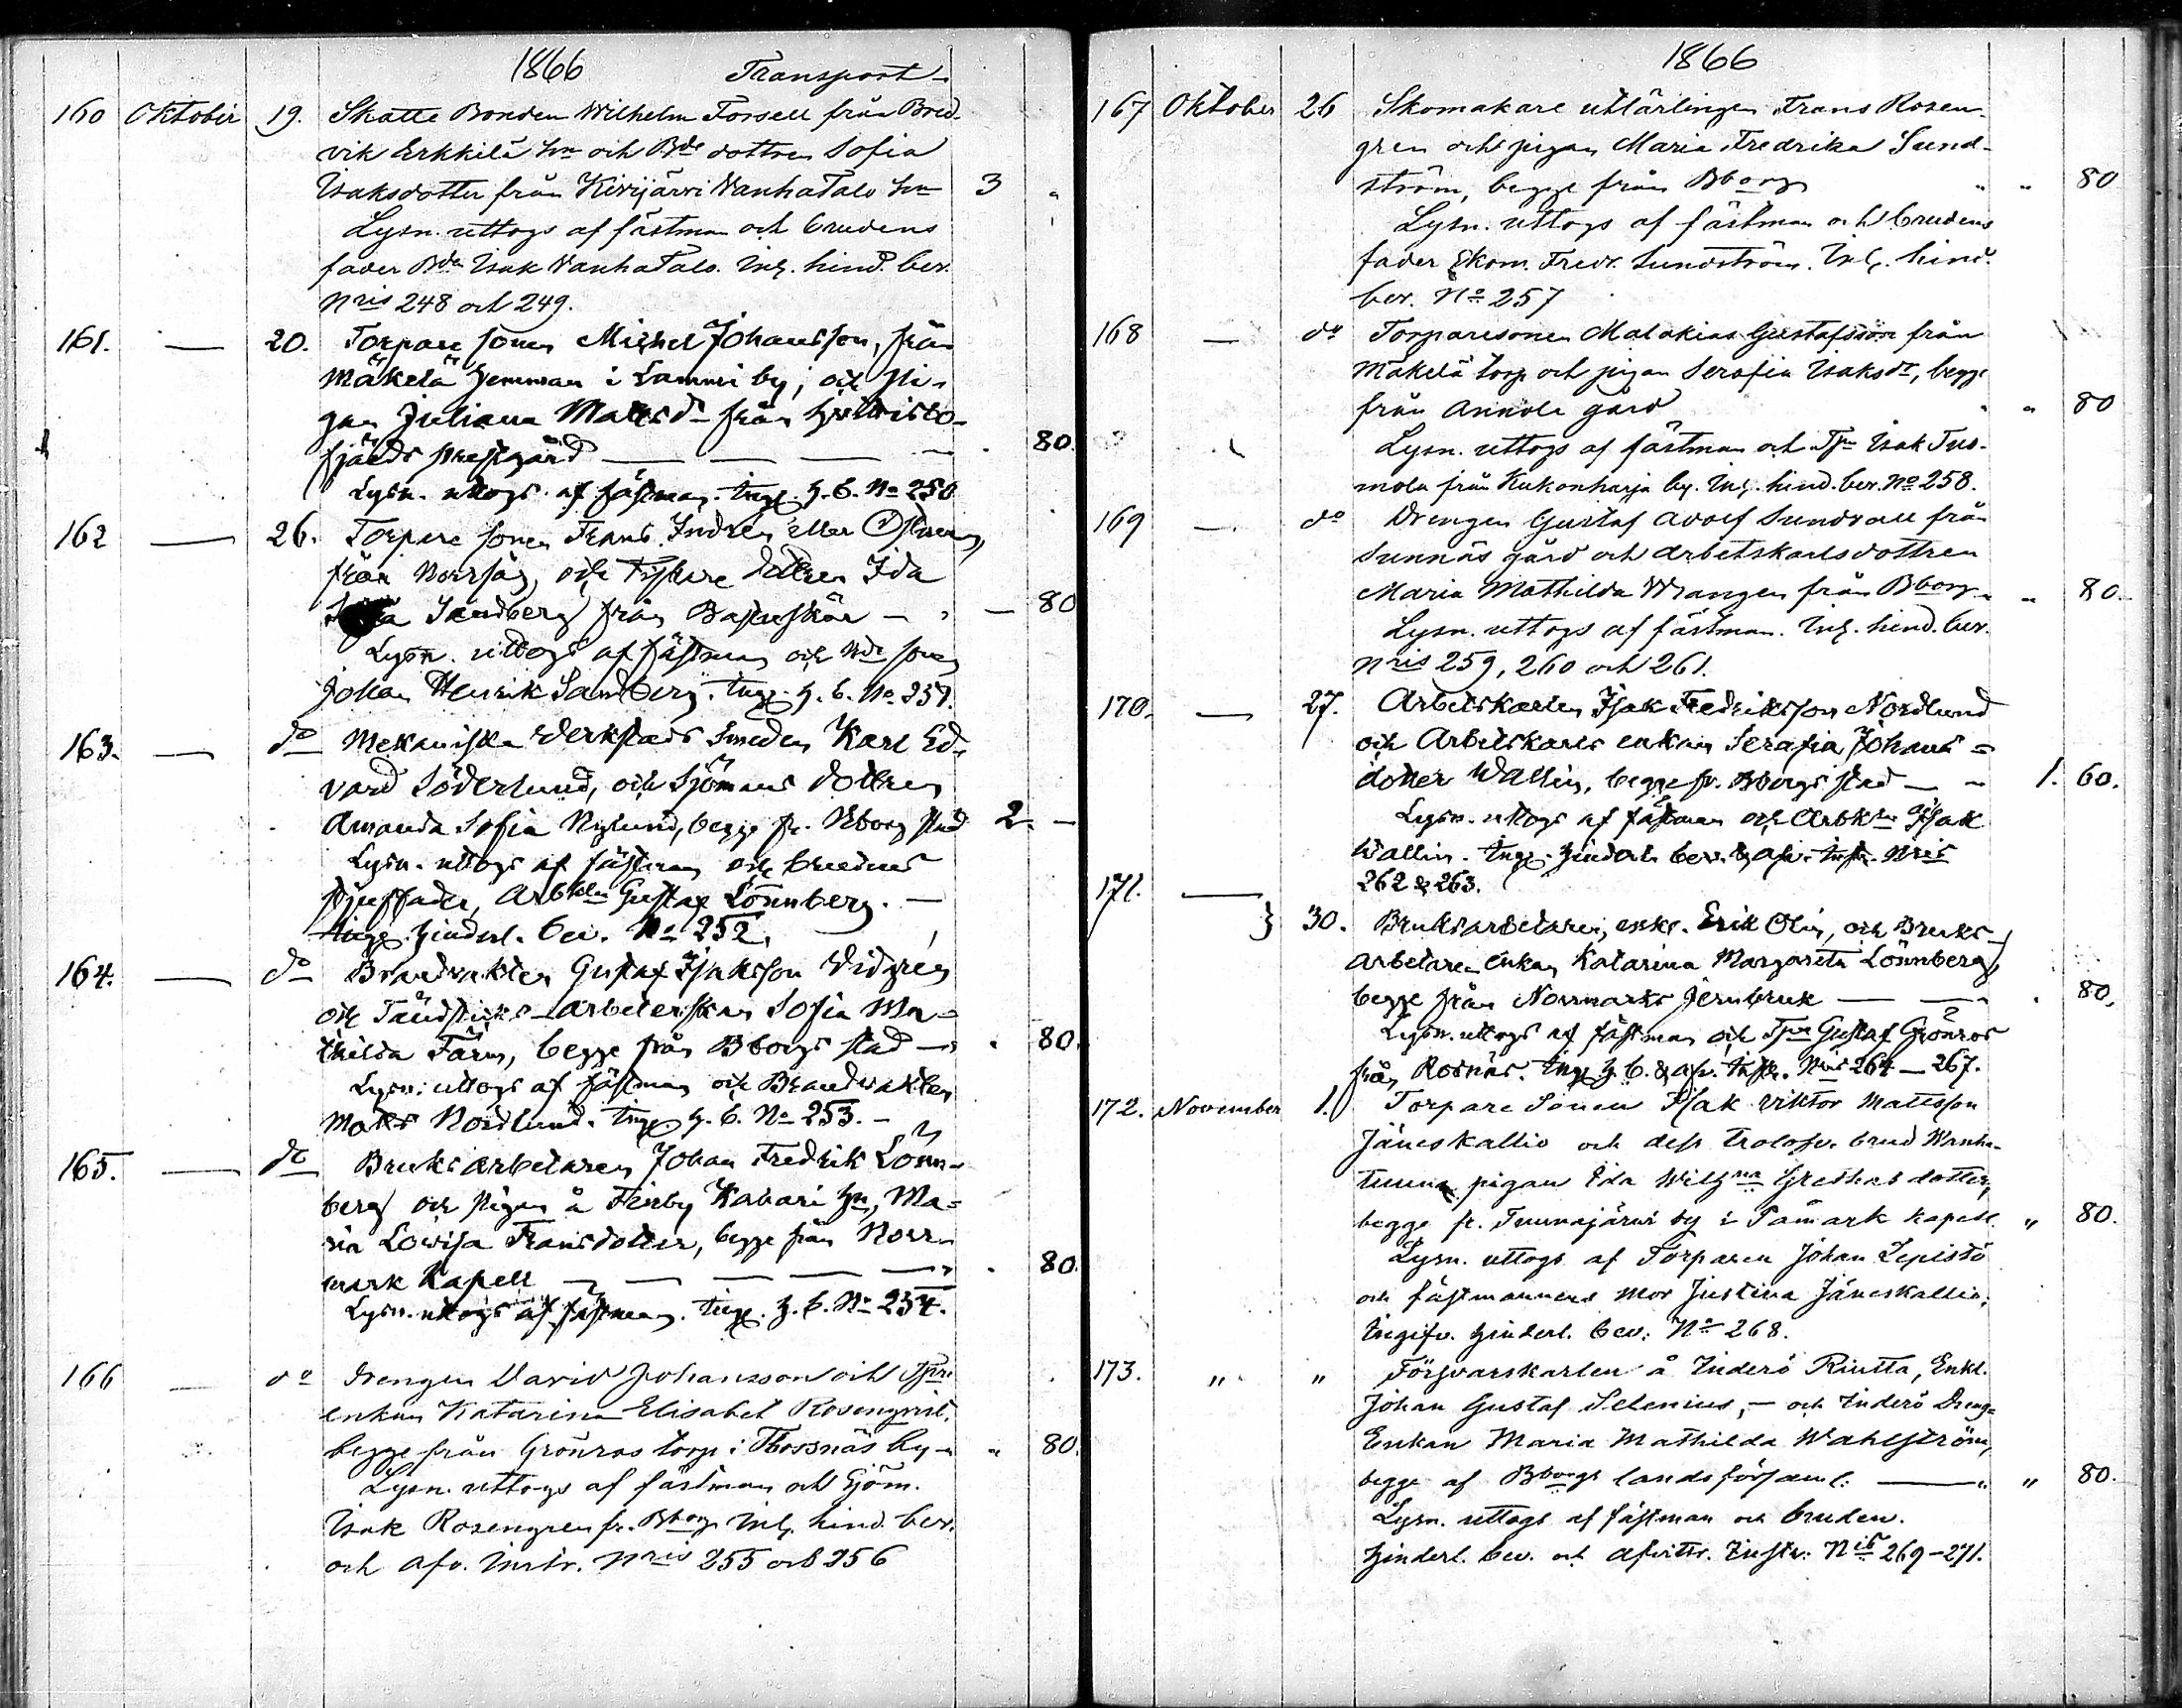 1866 Transport
160 Oktober 19. Skatte Bonden Wilhelm Forsell från Bred-
vik Erkkilä hn och Bde dottren Sofia
Isaksdotter från Kivijärvi VanhaTalo hn 3 "
Lysn. uttogs af fästman och brudens
fader Bdn Isak VanhaTalo. Inl. hind. ber.
Nris 248 och 249.
161. — 20. Torpare sonen Michel Johansson, från
Mäkelä hemman i Lammi by, och pi-
gan Juliana Matsdr från
fjärds prestgård — — — — 80.
Lysn. uttogs af fästman. Inge. h. b. No 250
162 — 26. Torpare sonen Frans Indren eller
från Norrsäg, och dottren Ida
Sandberg från Bastuskär — — 80
Lysn. uttogs af fästman och sonen
Johan Henrik Sandberg. Inge. h. b. No. 251.
163. — do Mekaniska Verkstads Smeden Karl Ed-
vard Söderlund, och Sjömans dottren
Amanda Sofia Nylund, begge fr. Bborg stad 2. —
Lysn. uttogs af fästman och brudens
styffader, Arbkln Gustaf Lönnberg. —
Inge. hinderl. bev. No 252.
164. — do Brandvakten Gustaf Isaksson Widgren
och Tändsticks-arbeterskan Sofia Ma-
thilda Färm, begge från Bborgs stad — 80.
Lysn. uttogs af fästman och Brandvakten
Mats Nordlund. Inge. h. b. No 253. —
165. — do Bruksarbetaren Johan Fredrik Lönn-
berg och pigan å Finby Kabari hn, Ma-
ria Lovisa Fransdotter, begge från Norr-
mark Kapell — — — — — 80.
Lysn. uttogs af fästman. Inge. h. b. No 254.
166 — do Drengen David Johansson och Tpre
enkan Katarina Elisabet Rosenqvist,
begge från Grönros torp i Thossnäs by " 80.
Lysn. uttogs af fästman och Sjöm.
Isak Rosengren fr. Bborg Inl. hind. bev.
och afv. instr. Nris 255 och 256
1866
167 Oktober 26 Skomakare utlärlingen Frans Rosen-
gren och pigan Maria Fredrika Sund-
ström, begge från Bborg " " 80
Lysn. uttogs af fästman och brudens
fader Ekom. Fredr. Sundström. Inl. hind.
bev. No 257
168 — do Torparesonen Malakias Gustafsson från
Mäkelä torp och pigan Serafia Isaksdr, begge
från Annola gård " " 80
Lysn. uttogs af fästman och Tpn Isak Tuo-
mola från Kukonharja by. Inl. hind. bev. No 258.
169 — do Drengen Gustaf Adolf Sundvall från
Sunnäs gård och arbetskarlsdottren
Maria Mathilda Wrangen från Bborg " " 80.
Lysn. uttogs af fästman. Inl. hind. bev.
Nris 259, 260 och 261.
170. — 27. Arbetskarlen Isak Fredriksson Nordlund
och Arbetskarls enkan Serafia Johans-
dotter Wallin, begge fr. Bborgs stad — 1. 60.
Lysn. uttogs af fästman och Arbkln Isak
Wallin. Inge. hinderl. bev. & afv. instr. Nris
262 & 263.
171. — } 30. Bruksarbetaren, enkl. Erik Olin, och Bruks-
arbetare enkan Katarina Margareta Lönnberg,
begge från Norrmarks Jernbruk — — 80.
Lysn. uttogs af fästman och Tpn Gustaf Grönros
från Rosnäs. Inge h. b. & afv. instr. Nris 264 — 267.
172. November 1. Torpare Sonen Isak Viktor Mattsson
Jäneskallio och dess trolofv. brud
pigan Ida Wilhna Grethasdotter,
begge fr. Tuunajärvi by i Påmark kapell. " 80.
Lysn. uttogs af Torparen Johan Lepistö
och fästmannens mor Justina Jäneskallio;
Ingifv. hinderl. bev: No 268.
173. " " Försvarskarlen å Inderö Riutta, Enkl.
Johan Gustaf Selenius, — och Inderö Dreng-
Enkan Maria Mathilda Wahlström,
begge af Bborgs landsförsaml: — " 80.
Lysn. uttogs af fästman och bruden.
Hinderl. bev. och afvittr. Instr: Nris 269-271.